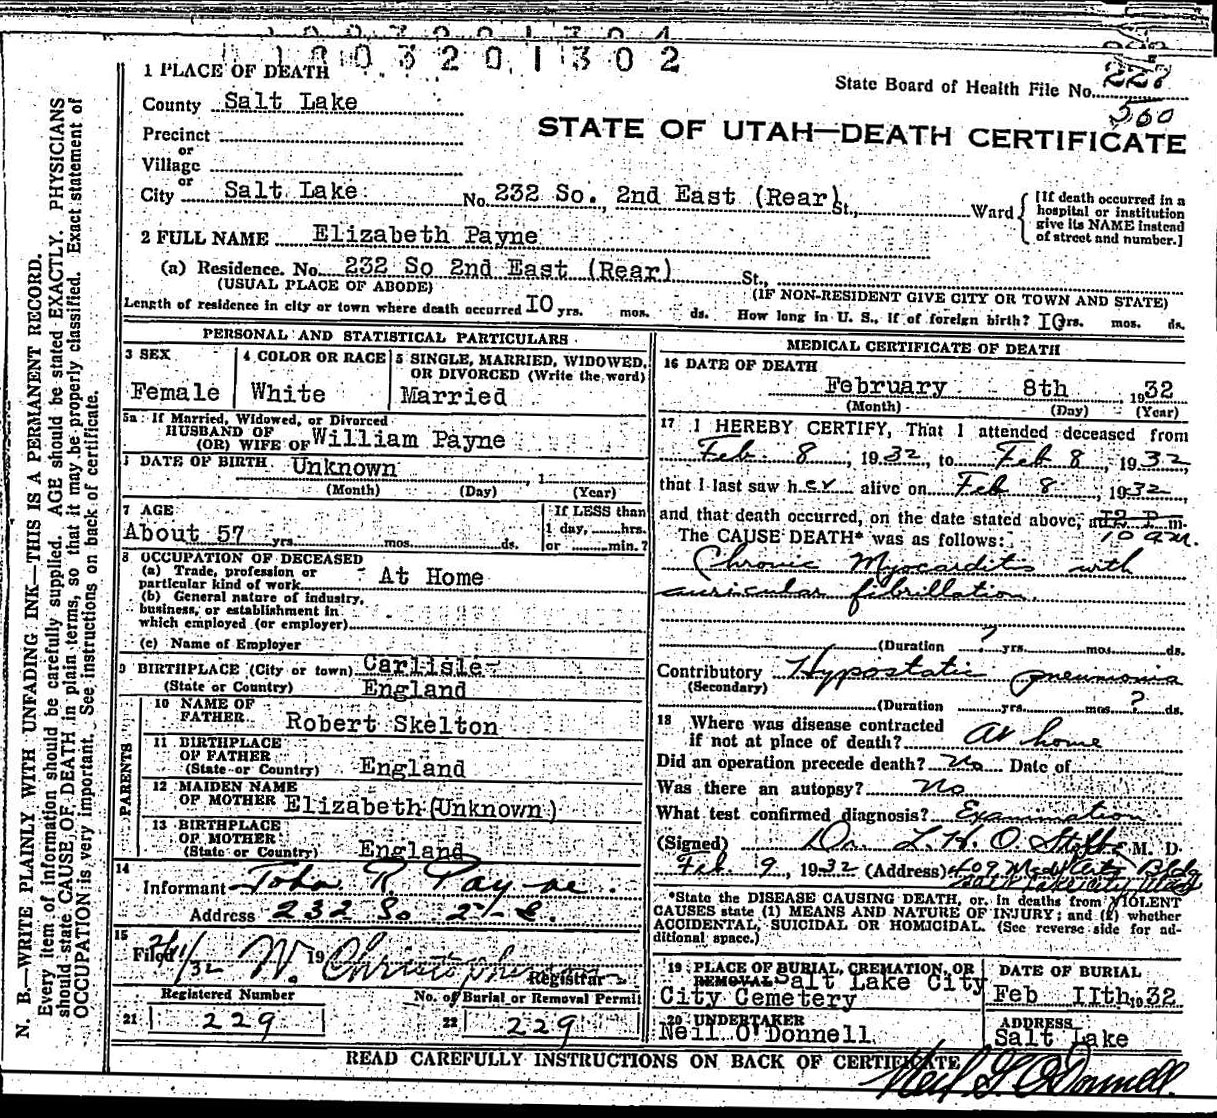 1003201302
1 PLACE OF DEATH
State Board of Health File No. 228
560
County Salt Lake
STATE OF UTAH—DEATH CERTIFICATE
Precinct
or
Village
or
City Salt Lake No. 232 So. 2nd East (Rear) St., Ward
[If death occurred in a hospital or institution give its NAME instead of street and number.]
2 FULL NAME Elizabeth Payne
(a) Residence. No. 232 So 2nd East (Rear) St.,
(USUAL PLACE OF ABODE) (IF NON-RESIDENT GIVE CITY OR TOWN AND STATE)
Length of residence in city or town where death occurred IO yrs. mos. ds. How long in U. S., if of foreign birth? IO yrs. mos. ds.
PERSONAL AND STATISTICAL PARTICULARS
3 SEX
Female
4 COLOR OR RACE
White
5 SINGLE, MARRIED, WIDOWED,
OR DIVORCED (Write the word)
Married
5a If Married, Widowed, or Divorced
HUSBAND OF
(OR) WIFE OF William Payne
DATE OF BIRTH Unknown , 1
(Month) (Day) (Year)
7 AGE
About 57 yrs. mos. ds.
If LESS than
1 day, hrs.
or min.?
8 OCCUPATION OF DECEASED
(a) Trade, profession or
particular kind of work At Home
(b) General nature of industry,
business, or establishment in
which employed (or employer)
(c) Name of Employer
9 BIRTHPLACE (City or town) Carlisle
(State or Country) England
PARENTS
10 NAME OF
FATHER Robert Skelton
11 BIRTHPLACE
OF FATHER
(State or Country) England
12 MAIDEN NAME
OF MOTHER Elizabeth (Unknown)
13 BIRTHPLACE
OF MOTHER
(State or Country) England
14
Informant John R. Payne.
Address 232 So 2nd E.
15
Filed 2/11/32 19 W. Christopherson
Registrar
Registered Number
21 229
No. of Burial or Removal Permit
22 229
MEDICAL CERTIFICATE OF DEATH
16 DATE OF DEATH
February 8th , 1932
(Month) (Day) (Year)
17 I HEREBY CERTIFY, That I attended deceased from
Feb. 8, 1932, to Feb 8, 1932
that I last saw her alive on Feb 8, 1932
and that death occurred, on the date stated above, at 12 P m.
The CAUSE DEATH* was as follows: 10 a.m.
Chronic Myocarditis with
auricular fibrillation
(Duration ? yrs. mos. ds.
Contributory Hypostatic pneumonia
(Secondary)
(Duration yrs. mos. ? ds.
18 Where was disease contracted
if not at place of death? At home
Did an operation precede death? No Date of
Was there an autopsy? No
What test confirmed diagnosis? Examination
(Signed) Dr. L. H. O. M. D.
Feb. 9, 1932 (Address) 409 Med. Arts Bldg
Salt Lake City Utah
*State the DISEASE CAUSING DEATH, or, in deaths from VIOLENT
CAUSES state (1) MEANS AND NATURE OF INJURY; and (2) whether
ACCIDENTAL, SUICIDAL OR HOMICIDAL. (See reverse side for additional space.)
19 PLACE OF BURIAL, CREMATION, OR
REMOVAL Salt Lake City
City Cemetery
DATE OF BURIAL
Feb IIth 1932
20 UNDERTAKER
Neil O'Donnell
ADDRESS
Salt Lake
READ CAREFULLY INSTRUCTIONS ON BACK OF CERTIFICATE
Neil G. O'Donnell.
N. B.—WRITE PLAINLY WITH UNFADING INK—THIS IS A PERMANENT RECORD.
Every item of information should be carefully supplied. AGE should be stated EXACTLY. PHYSICIANS
should state CAUSE OF DEATH in plain terms, so that it may be properly classified. Exact statement of
OCCUPATION is very important. See instructions on back of certificate.